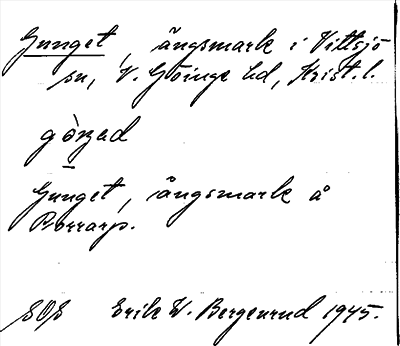 Gunget, ängsmark i Vittsjö
sn, V. Göinge hd, Krist. l.
Gunget, ängsmark å
Porrarp.
SOS Erik W. Bergenrud 1945.